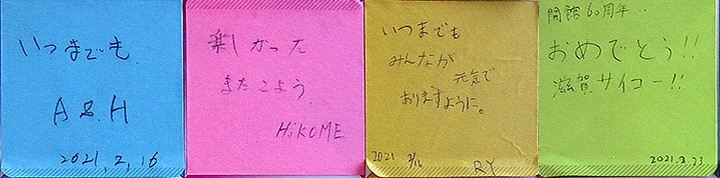 いつまでも
A&H
2021,2,16
楽しかった
またこよう
HiKOME
いつまでも
みんなが
元気で
おりますように。
2021 2/16
RY
開館60周年..
おめでとう!!
滋賀サイコー!!
2021.2.23